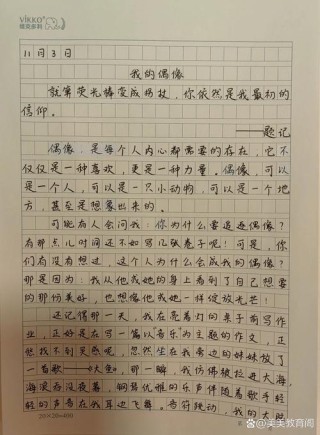 VIKKO
维克多利
11月3日
我的偶像
就算荧光棒变成拐杖，你依然是我最初的
信仰。
——题记
偶像，是每个人内心都需要的存在，它不
仅仅是一种喜欢，更是一种力量。偶像，可以
是一个人，可以是一只小动物，可以是一个地
方，甚至是想象出来的。
可能有人会问我：你为什么要追逐偶像？
有那点儿时间还不如写几张卷子呢！可是，你
们有没有想过，这个人为什么会成我的偶像？
那是因为：我从他或她的身上看到了自己想要
的那份美好，也想像他或她一样绽放光芒！
还记得那一天，我在亮着灯的桌子前写作
业，正好是在写一篇以“音乐”为主题的作文，正
愁找不到灵感呢，忽然坐在我旁边的妹妹放了
一首歌——《大鱼》，那一瞬，我仿佛被拉进大海，
海浪吞没夜幕，钢琴优雅的乐声伴随着歌手轻
轻的声音在我耳边飞舞。音符跳动，我的大脑
20×20=400
@美美教育阁